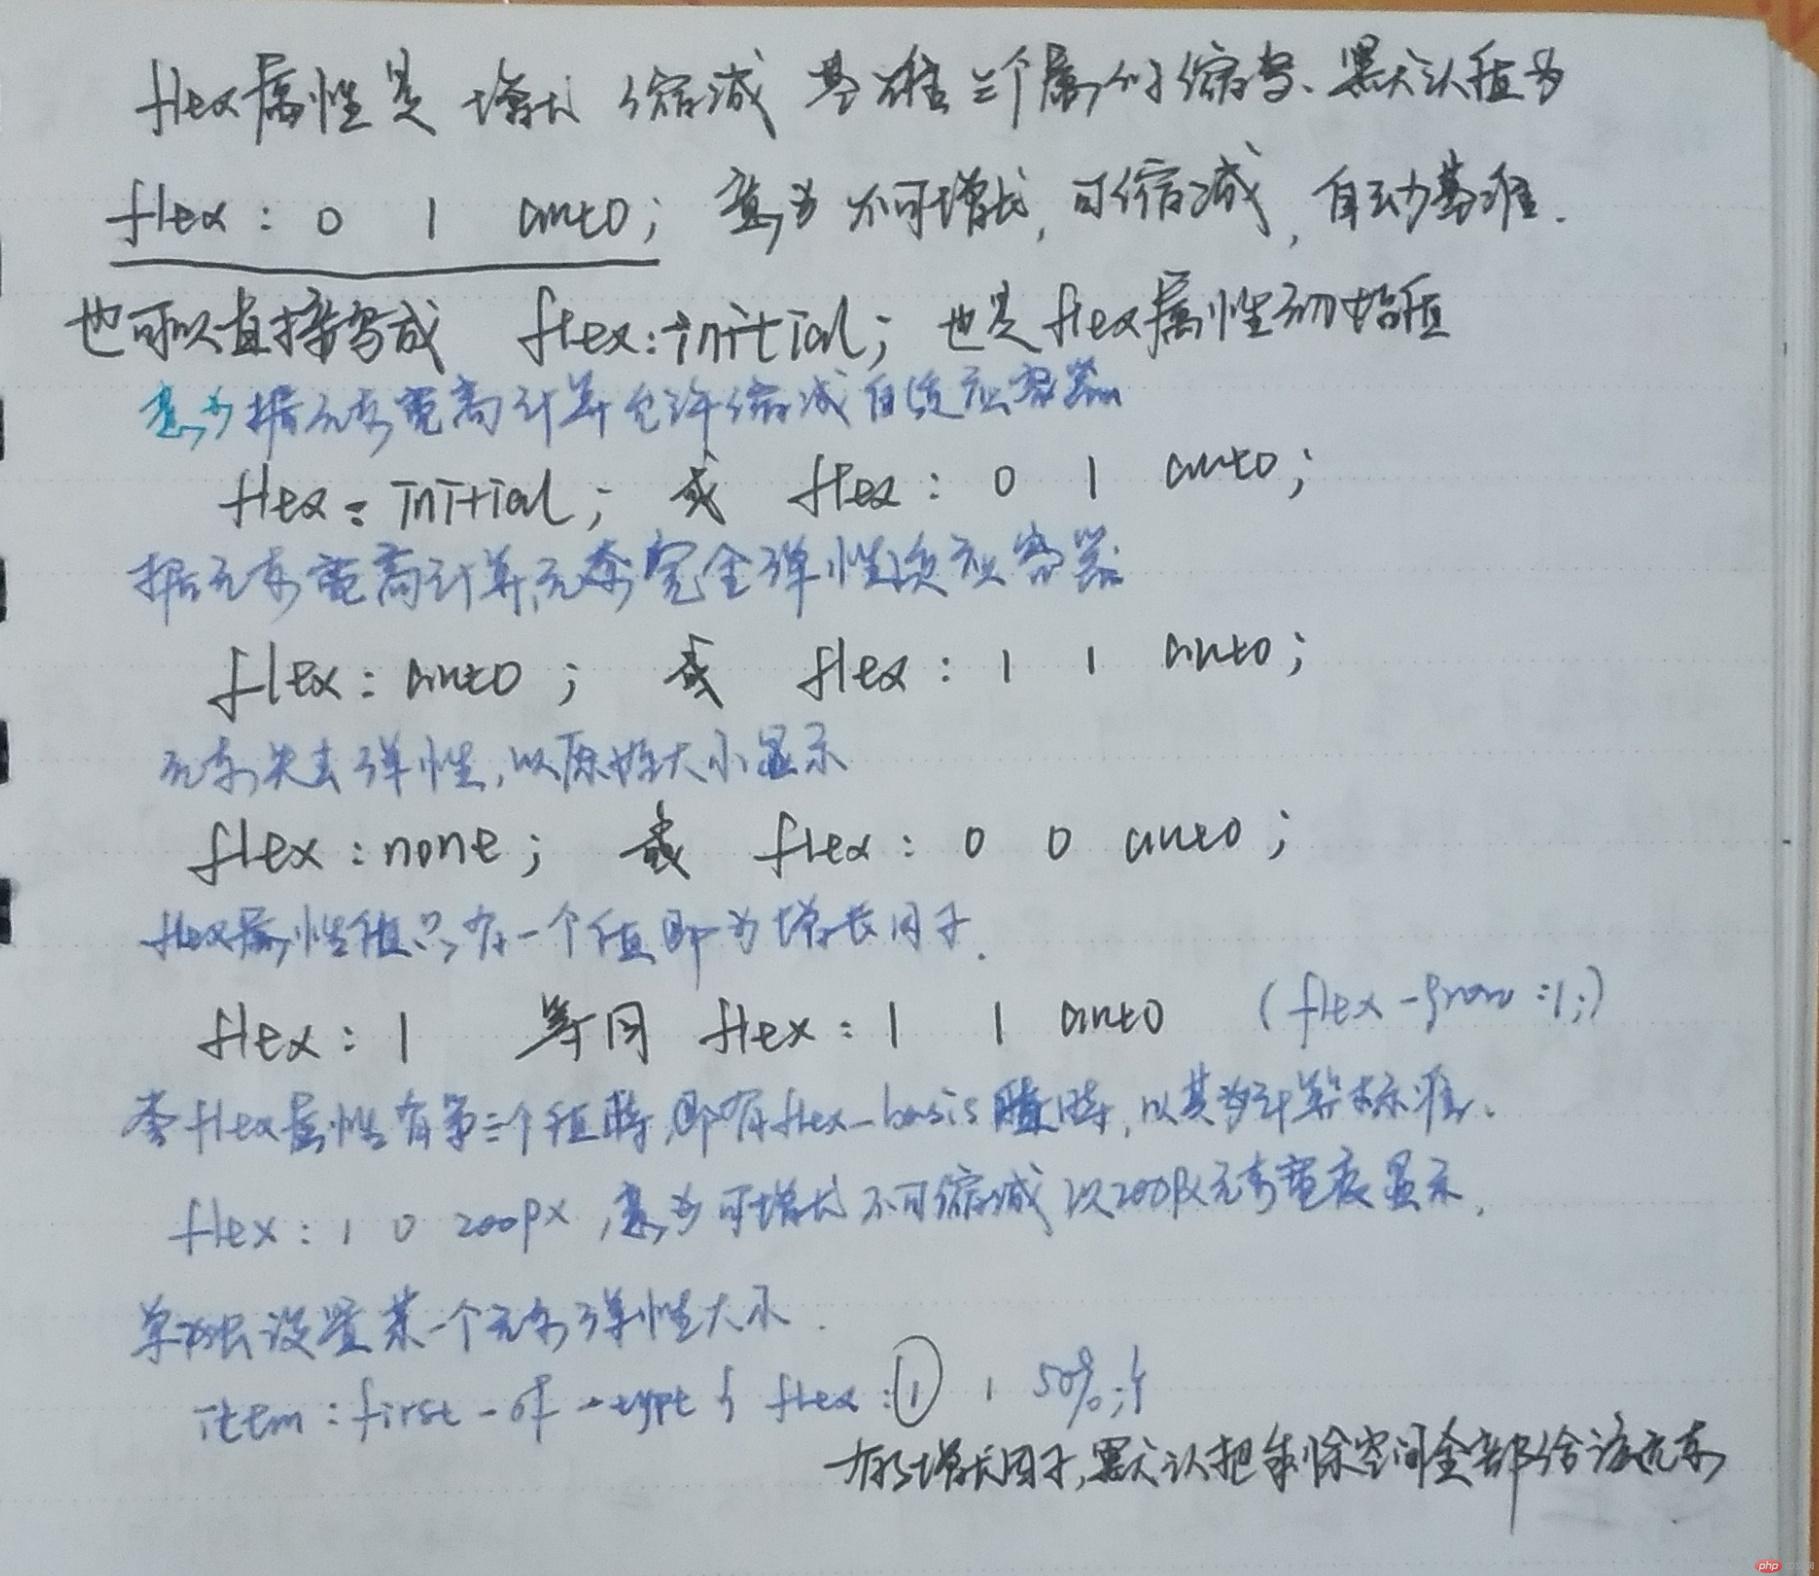 flex属性是 增长 缩减 基准三个属性缩写、默认值为
flex: 0 1 auto; 意为不可增长, 可缩减, 自动基准.
也可以直接写成 flex:initial; 也是flex属性初始值
意为据元素宽高计算允许缩减自适应容器
flex:initial; 或 flex: 0 1 auto;
据元素宽高计算,元素完全弹性适应容器
flex: auto; 或 flex: 1 1 auto;
元素失去弹性,以原始大小显示
flex:none; 或 flex: 0 0 auto;
flex属性值只有一个值即为增长因子.
flex: 1 等同 flex: 1 1 auto (flex-grow:1;)
当flex属性有第三个值时,即有flex-basis值时,以其为计算标准.
flex: 1 0 200px,意为可增长不可缩减以200px元素宽度显示.
单独设置某一个元素弹性大小.
item:first-of-type{ flex:1 1 50%;}
有了增长因子,默认把剩余空间全部给该元素
php